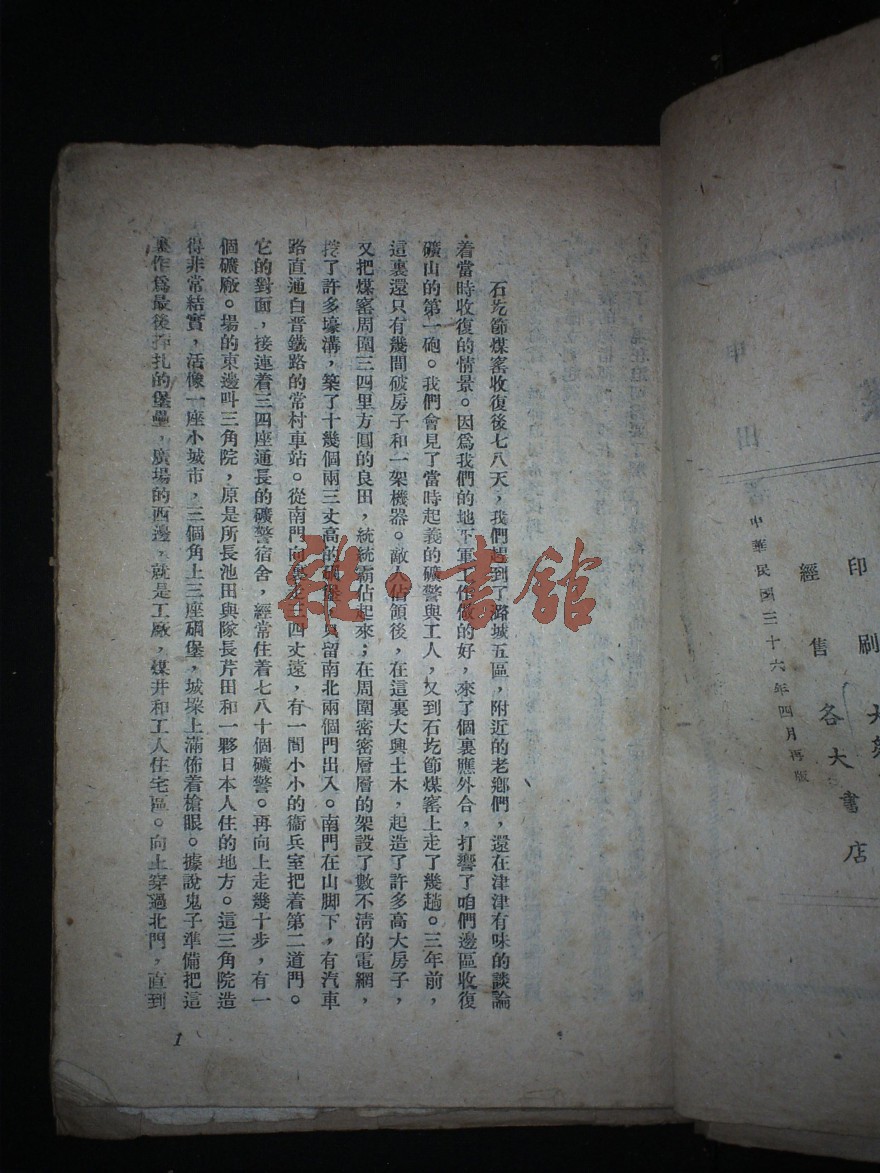 中華民國三十六年四月再版
印刷
經售 各大書店
石圪節煤窰收復後七八天，我們趕到了潞城五區，附近的老鄉們，還在津津有味的談論
着當時收復的情景。因爲我們的地下軍工作做的好，來了個裏應外合，打響了咱們邊區收復
礦山的第一砲。我們會見了當時起義的礦警與工人，又到石圪節煤窰上走了幾趟。三年前，
這裏還只有幾間破房子和一架機器。敵人佔領後，在這裏大興土木，起造了許多高大房子，
又把煤窰周圍三四里方圓的良田，統統霸佔起來；在周圍密密層層的架設了數不清的電網，
挖了許多壕溝，築了十幾個兩三丈高的碉堡，只留南北兩個門出入。南門在山脚下，有汽車
路直通白晉鐵路的常村車站。從南門向裏走三四丈遠，有一間小小的衞兵室把着第二道門。
它的對面，接連着三四座通長的礦警宿舍，經常住着七八十個礦警。再向上走幾十步，有一
個礦廠。場的東邊叫三角院，原是所長池田與隊長芹田和一夥日本人住的地方。這三角院造
得非常結實，活像一座小城市，三個角上三座碉堡，城垜上滿佈着槍眼。據說鬼子準備把這
裏作爲最後掙扎的堡壘，廣場的西邊，就是工廠，煤井和工人住宅區。向上穿過北門，直到
1
雜·書館